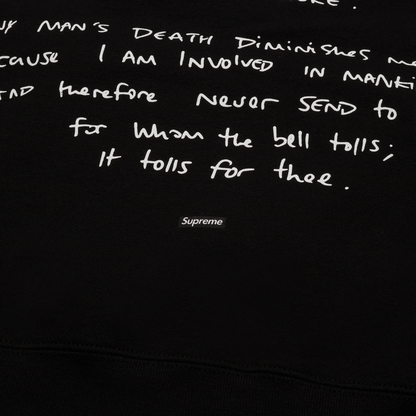 MAN'S DEATH DIMINISHES
I AM INVOLVED IN
therefore NEVER SEND to
for whom the bell tolls;
It tolls for thee.
Supreme